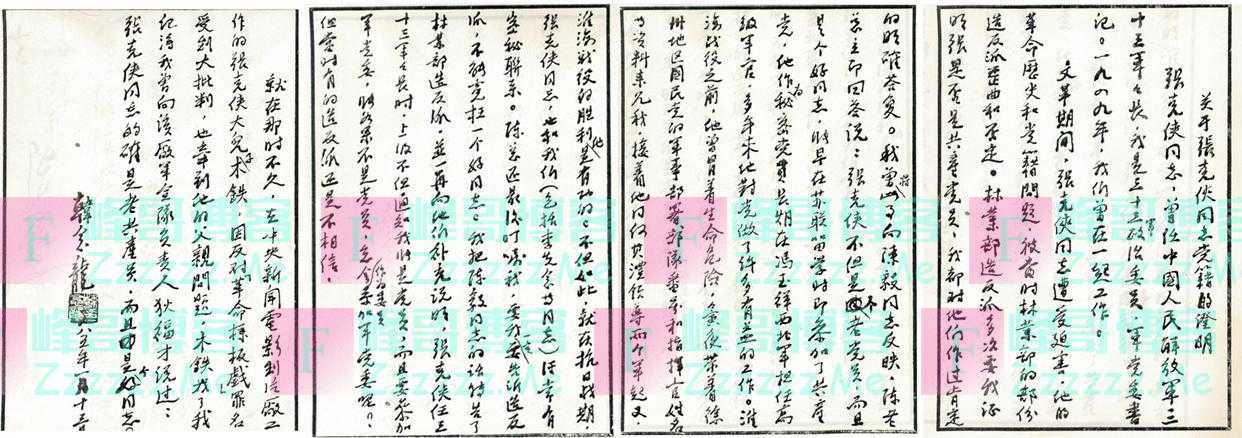 关于张克侠同志党籍的澄明
张克侠同志,曾任中國人民解放军三
十三军々长,我是三十三军政治委员、军党委書
记。一九四九年,我们曾在一起工作。
文革期间,张克侠同志遭受迫害,他的
革命歷史和党籍問題,被当时林業部的部份
造反派歪曲和否定。林業部造反派多次要我证
明张是否是共産党员,我都对他们作过肯定
的明確荅复。我曾将此事向陳毅同志反映,陈老
总立即回荅说:张克侠不但是个老党员,而且
是个好同志,他早在苏联留学时即参加了共産
党,他作为秘密党員长期在冯玉祥西北军担任高
级军官,多年来他对党做了许多有益的工作。淮
海战役之前,他曾冒着生命危险,
州地区國民党的军事部署部隊番号和指揮官姓名
等资料来见我,接着他同何其澧领导两个军起义,
淮海战役的胜利他是有功的。不但如此,就在抗日战期
张克侠同志,也和我们(包括李先念等同志)经常有
密秘聯系。陈总还最後叮嘱我,要我要告诉造反
派,不能冤枉一个好同志。我把陈毅同志的话转告了
林業部造反派,並一再向他们补充说明,张克侠任三
十三军々长时,上级不但通知我,他是党员,而且要参加
军党委作为委員,他如果不是党员,怎会参加军党委呢?
但当时有的造反派还是不相信。
就在那时不久,在中央新聞電影制片厰工
作的张克侠大兒子木铁,因反对革命樣板戲罪名
受到大批判,也牵到他的父親問題,木铁找了我
记得我曾向该厰军宣隊负责人狄福才说过:
张克侠同志的確是老共產党员,而且是好同志。
韓念龍
八五年一月十三日
峰哥博客
Zzzzzz.Me